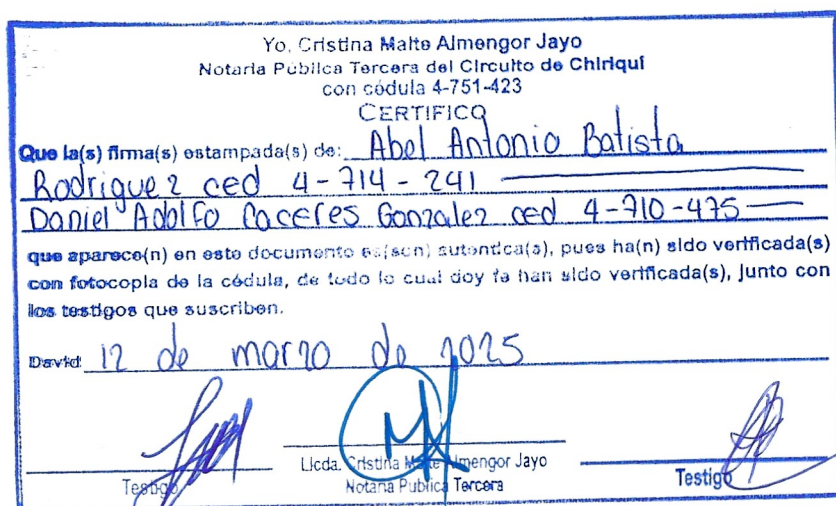 Yo, Cristina Maite Almengor Jayo
Notaria Pública Tercera del Circuito de Chiriquí
con cédula 4-751-423
CERTIFICO
Que la(s) firma(s) estampada(s) de: Abel Antonio Batista
Rodriguez ced 4-714-241
Daniel Adolfo Caceres Gonzalez ced 4-710-475
que aparece(n) en este documento es(son) autentica(s), pues ha(n) sido verificada(s)
con fotocopia de la cédula, de todo lo cual doy fe han sido verificada(s), junto con
los testigos que suscriben.
David 12 de marzo de 2025
Testigo Licda. Cristina Maite Almengor Jayo Testigo
Notaria Pública Tercera